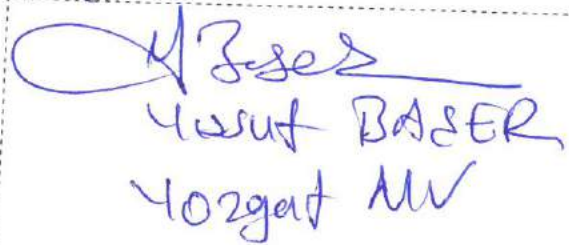 Y Başer
Yusuf BAŞER
Yozgat MV